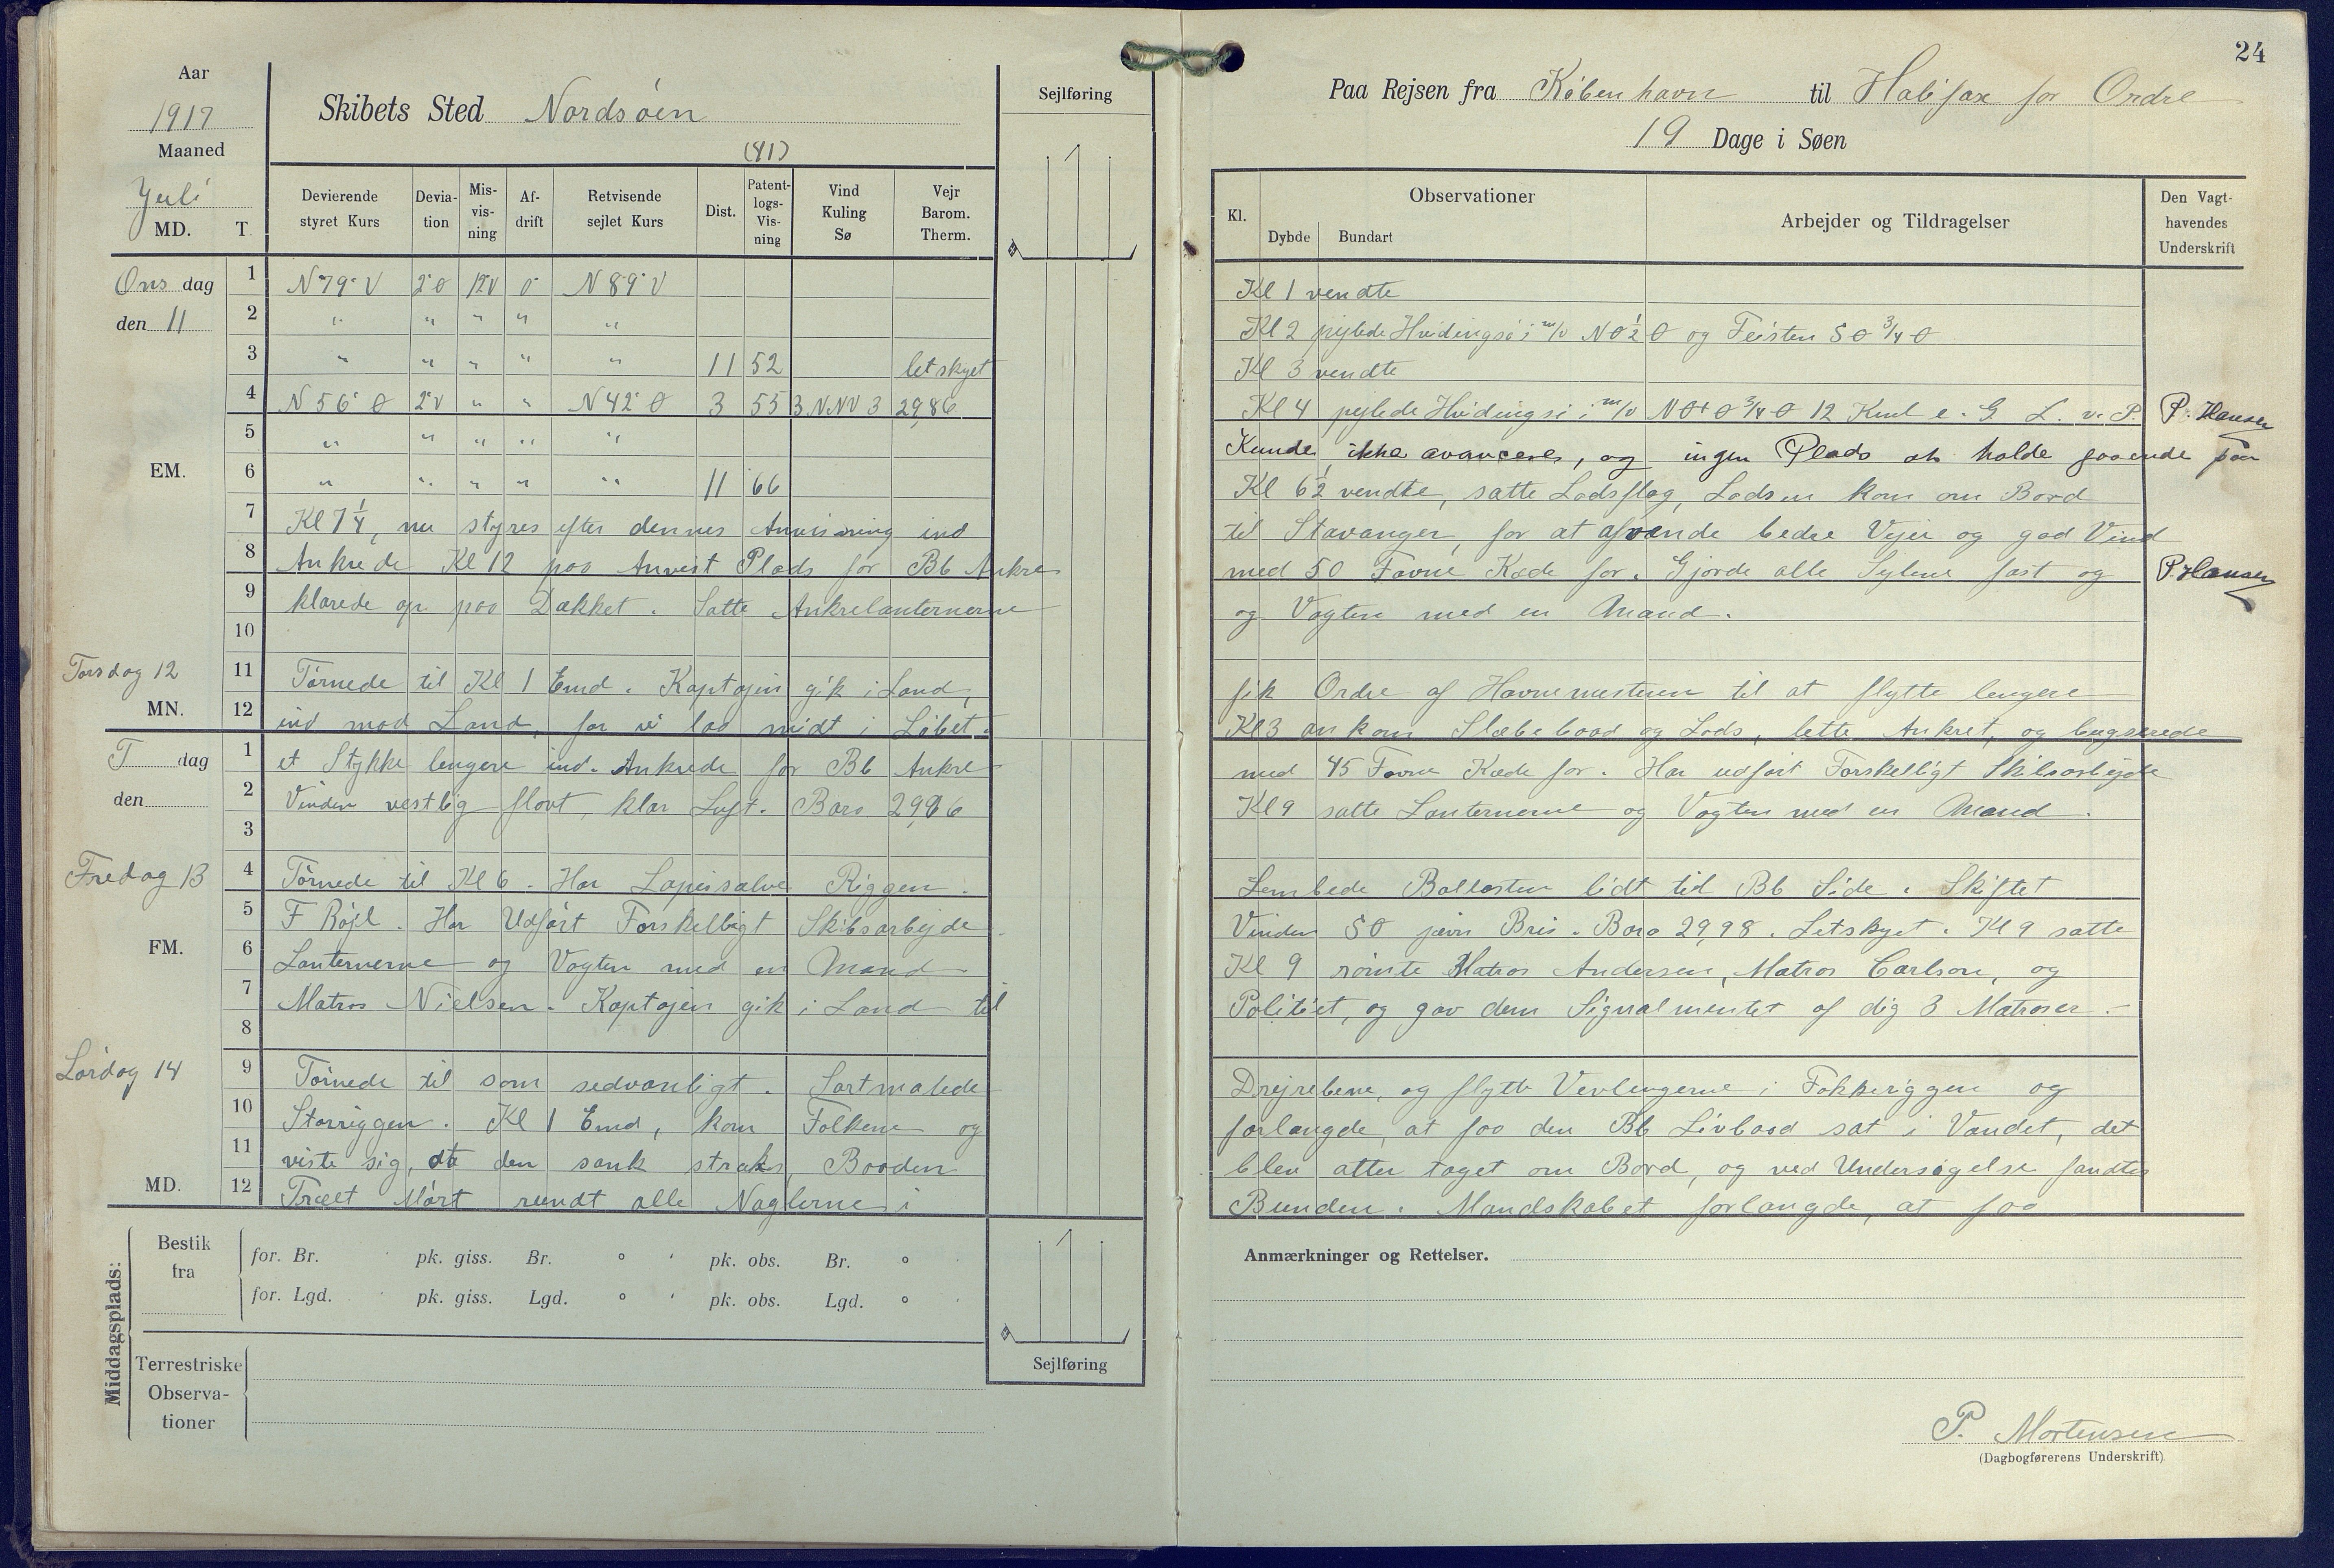 Aar
1917
Maaned
Juli
MD. T.
Skibets Sted Nordsöen
(81)
Sejlføring
Devierende styret Kurs
Devia-tion
Mis-vis-ning
Af-drift
Retvisende sejlet Kurs
Dist.
Patent-logs-Vis-ning
Vind Kuling Sø
Vejr Barom. Therm.
Ons dag
den 11
1 N79°V 2°O 12V 0 N89°V
2 " " " " "
3 " " " " " 11 52 letskyet
4 N56°O 2°V " " N42°O 3 55 3 NNV 3 29,86
5 " " " " "
EM.
6 " " " " " 11 66
7 Kl 7 1/4, nu styres efter dennes Anvisning ind
8 Ankrede Kl 12 paa Anvist Plads for Bb Anker
9 klarede op paa Dækket. Satte Ankerlanternerne
10
Torsdag 12
11 Törnede til Kl 1 Emd. Kaptajen gik i Land,
MN.
12 ind mod Land, for vi laa midt i Löbet.
T dag
den
1 et Stykke lengere ind. Ankrede for Bb Anker
2 Vinden vestlig flovt, klar Luft. Baro 29,96
3
Fredag 13
4 Törnede til Kl 6. Har Lapisalvet Riggen.
5 F Röjl. Har Udfört Forskelligt Skibsarbejde
FM.
6 Lanternerne og Vagten med en Mand
7 Matros Nielsen. Kaptajen gik i Land til
8
Lördag 14
9 Törnede til som sedvanligt. Sortmalede
10 Storriggen. Kl 1 Emd, kom Folkene og
11 viste sig, at den sank straks, Baaden
MD.
12 Træet Mört rundt alle Naglerne i
Middagsplads:
Bestik fra
for. Br. ' pk. giss. Br. ° ' pk. obs. Br. ° '
for. Lgd. ' pk. giss. Lgd. ° ' pk. obs. Lgd. ° '
Terrestriske Observa-tioner
Sejlføring
24
Paa Rejsen fra Köbenhavn til Halifax for Ordre
19 Dage i Søen
Kl.
Observationer
Dybde Bundart
Arbejder og Tildragelser
Den Vagt-havendes Underskrift
Kl 1 vendte
Kl 2 pejlede Hvidingsö i m/v NO 1/2 O og Feisten SO 3/4 O
Kl 3 vendte
Kl 4 pejlede Hvidingsö i m/v NOtO 3/4 O 12 Kml e. G L. v. P. P. Hansen
Kunde ikke avancere, og ingen Plads at holde gaaende paa
Kl 6 1/2 vendte, satte Lodsflag, Lodsen kom om Bord
til Stavanger, for at afvende bedre Vejer og god Vind
med 50 Favne Kæde for. Gjorde alle Sejlene fast og P. Hansen
og Vagten med en Mand.
fik Ordre af Havnemesteren til at flytte lengere
Kl 3 ankom Slæbebaad og Lods, lette Ankret, og bugserede
med 45 Favne Kæde for. Har udfört Forskelligt Skibsarbejde
Kl 9 satte Lanternerne og Vagten med en Mand.
Lembede Ballasten lidt til Bb Side. Skiftet
Vinden SO jævn Bris. Baro 29,98. Letskyet. Kl 9 satte
Kl 9 römte Matros Andersen, Matros Carlson, og
Politiet, og gav dem Signalmentet af dig 3 Matroser.
Drejrebene, og flytte Vevlingerne i Fokkeriggen og
forlangde, at faa den Bb Livbaad sat i Vandet, det
blev atter taget om Bord, og ved Undersögelse fandtes
Bunden. Mandskabet forlangde, at faa
Anmærkninger og Rettelser.
P. Mortensen
(Dagbogførerens Underskrift)